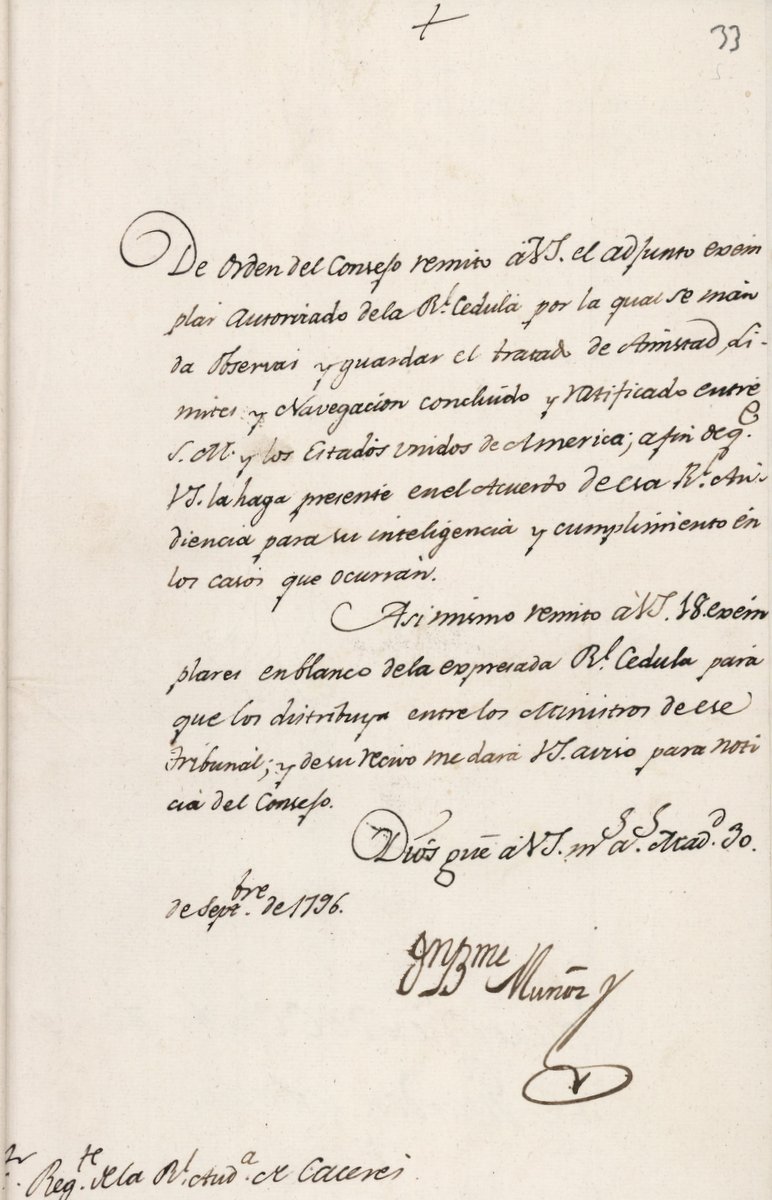 +
33
De Orden del Consejo remito à VS. el adjunto exem
plar autorizado de la Rl. Cedula por la qual se man
da observar y guardar el tratado de Amistad, Li-
mites y Navegacion concluido y ratificado entre
S. M. y los Estados unidos de America; a fin de qe.
VS. la haga presente en el Acuerdo de esa Rl. Au-
diencia para su inteligencia y cumplimiento en
los casos que ocurran.
Asi mismo remito à VS. 18. exem
plares en blanco de la expresada Rl. Cedula para
que los distribuya entre los Ministros de ese
Tribunal; y de su recivo me dará VS. aviso para noti
cia del Consejo.
Dios gue. à VS. ms. as. Madd. 30.
de Septbre. de 1796.
Muñoz
Regte. de la Rl. Auda. de Caceres.